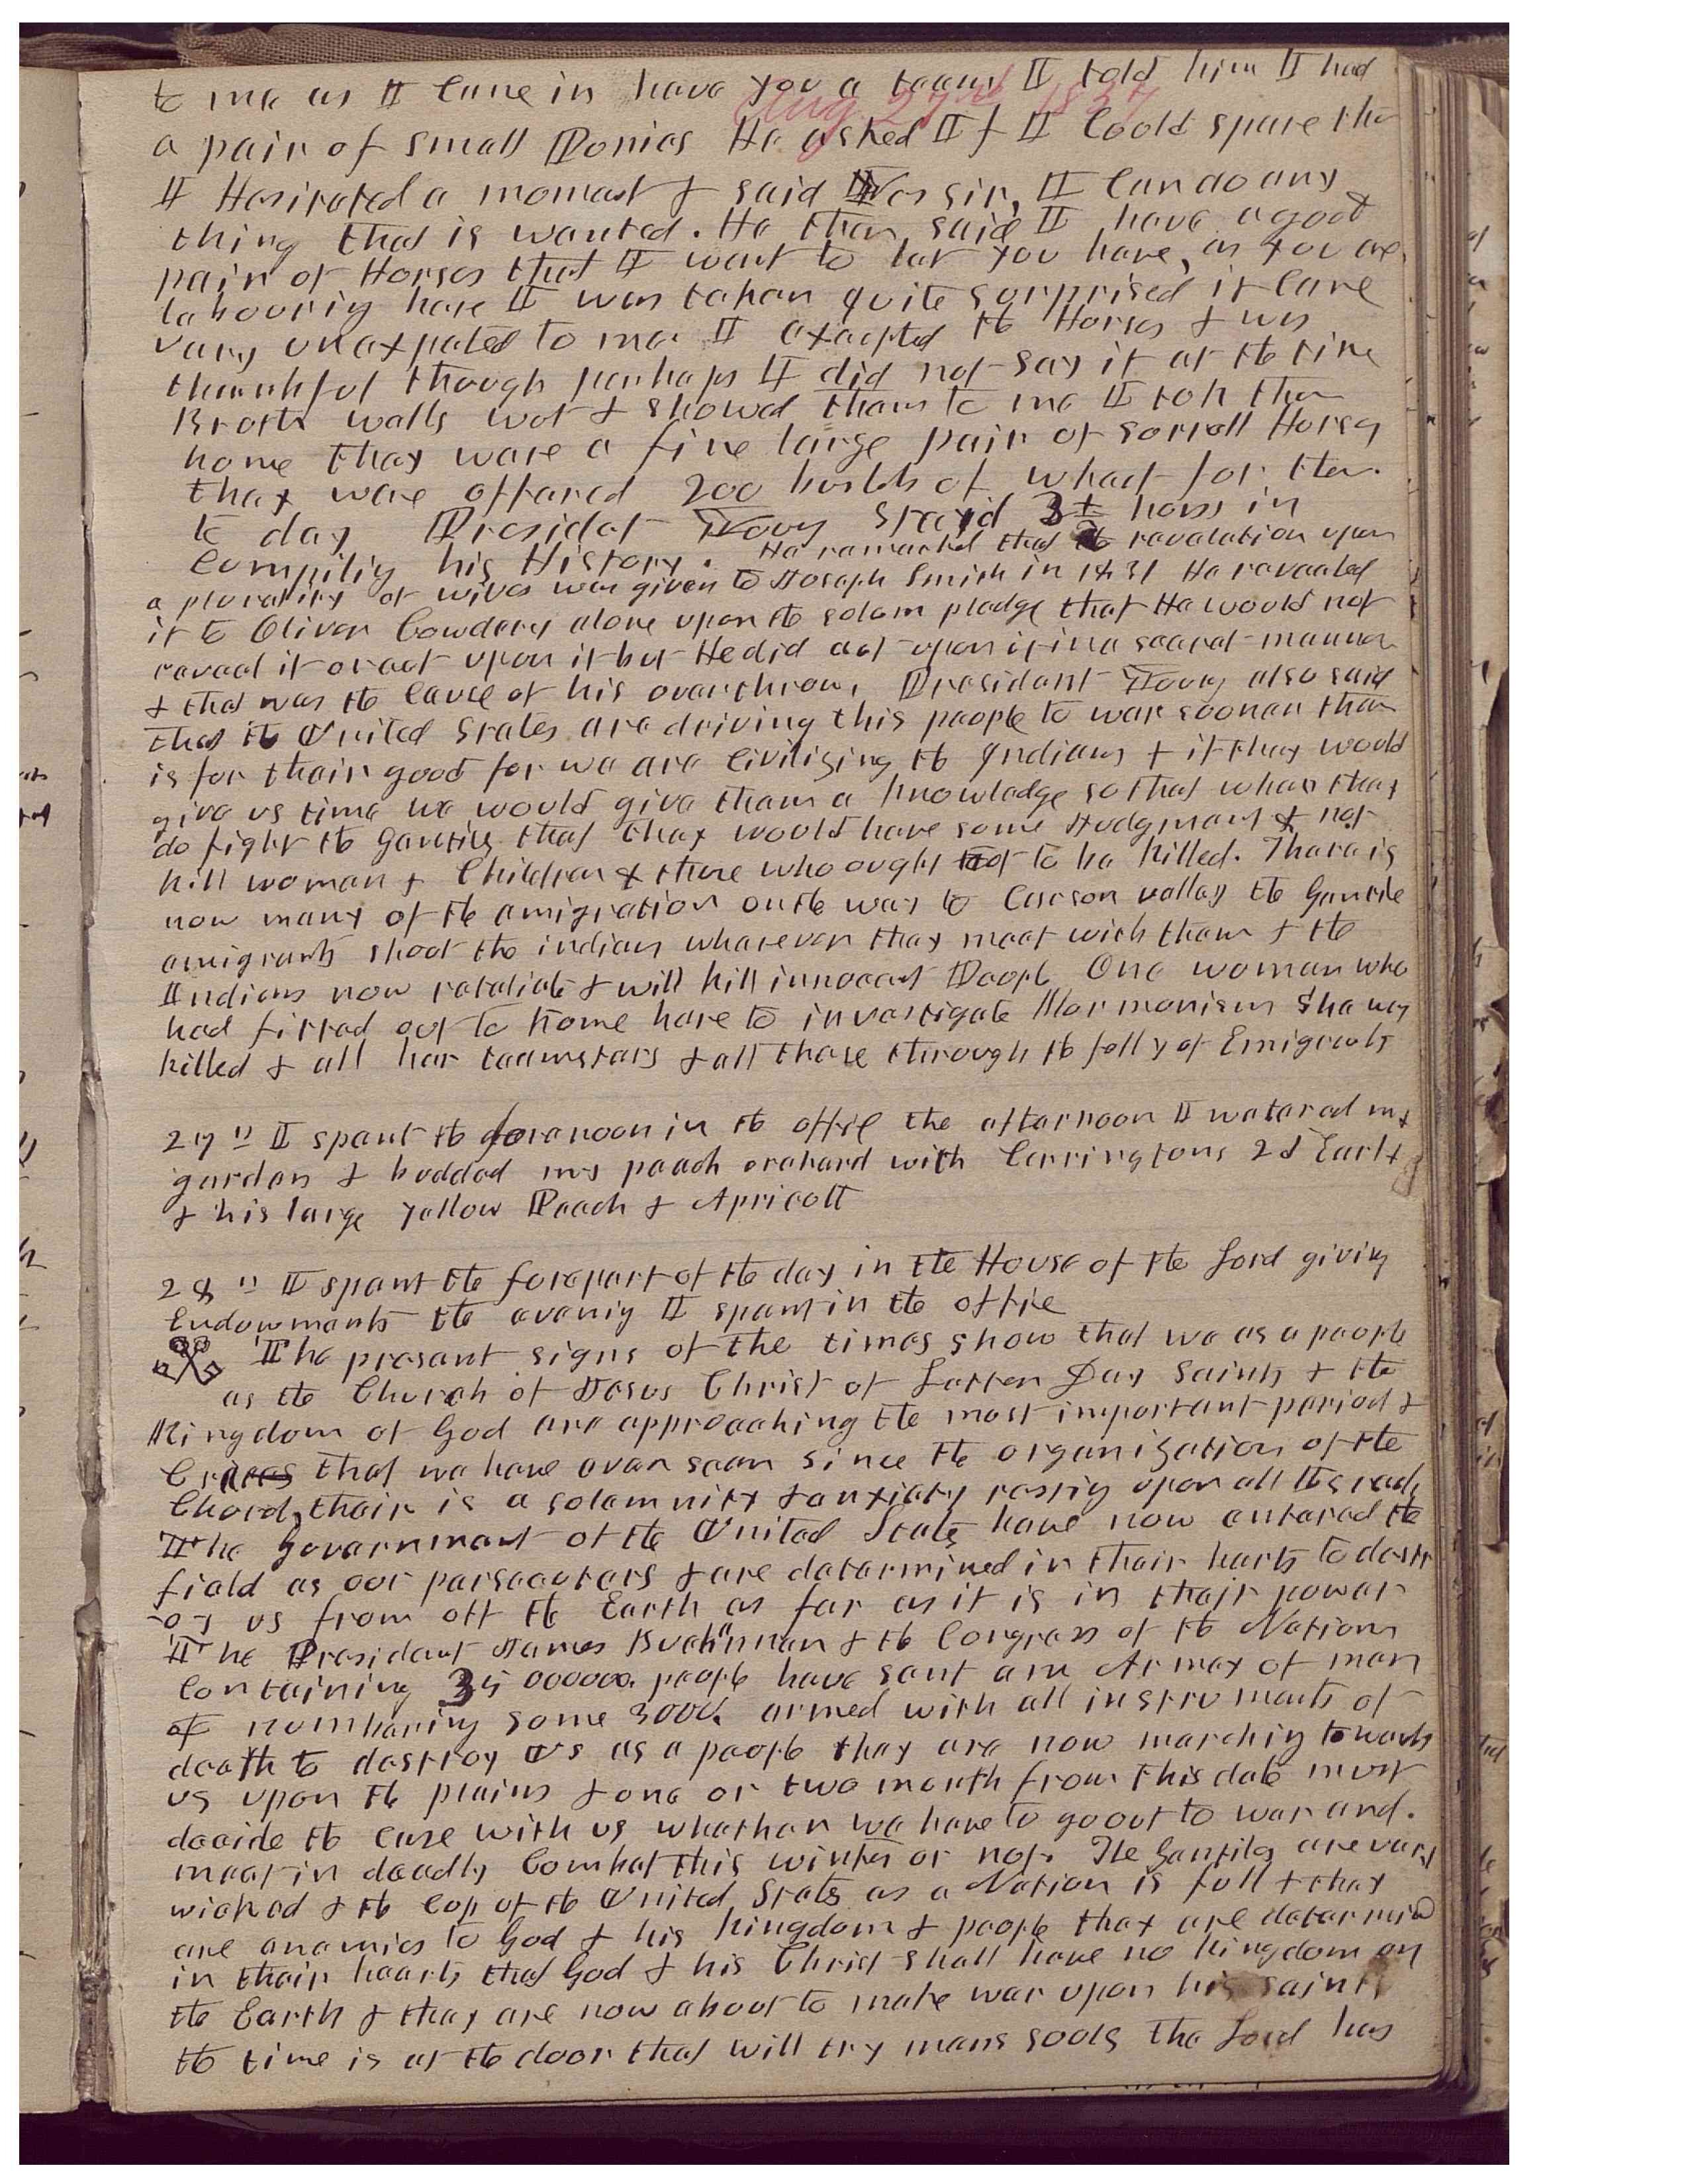 to me as I came in have you a team I told him I had
Aug. 27th 1857
a pair of small Ponies He asked If I Could spare the
I Hesitated a moment & said Yes sir, I Can do any
thing that is wanted. He then said I have a good
pair of Horses that I want to let you have, as you are
labouring here I was taken quite surprised it came
vary unexpated to me I excepted the Horses & was
thankful though perhaps I did not say it at the time
Brother wells wet & showed them to me I tok them
home they ware a fine large pair of sorrell Horses
they were offered 200 bushels of wheat for them.
to day President Young staid 3½ hours in
Compiling his History. He remarked that the revelation upon
a plurality of wives was given to Joseph Smith in 1831 He revealed
it to Oliver Cowdery alone upon the solem pledge that He would not
reveal it or act upon it but He did act upon it in a secret manner
& that was the cause of his overthrow. President Young also said
that the United States are driving this people to war sooner than
is for their good for we are Civilizing the Indians & if they would
give us time we would give them a knowledge so that when they
do fight the gentiles that they would have some Judgment & not
kill woman & Children & those who ought not to be killed. There is
now many of the emigration on the way to Carson valley the Gentile
emigrants shoot the indians wharever they meet with them & the
Indians now retaliate & will kill innocent People One woman who
had fitted out to come here to investigate Mormonism She was
killed & all her teamsters & all those through the folly of Emigrants
27" I spent the forenoon in the office the afternoon I watered my
garden & budded my peach orchard with Carringtons 2d Early
& his large yellow Peach & Apricott
28" I spent the forepart of the day in the House of the Lord giving
Endowments the evenig I spent in the office
The present signs of the times show that we as a people
as the Church of Jesus Christ of Latter Day Saints & the
Kingdom of God are approaching the most important period &
Crices that we have ever seen since the organization of the
Church, their is a solemnity & anxiety resting upon all Israel,
The government of the United States have now entered the
field as our persecutors & are determined in their harts to destr
-oy us from off the Earth as far as it is in their power
The President James Buchannan & the Congress of the Nation
Containing 35 000000. people have sent are Armey of men
of numbering some 3000. armed with all instruments of
death to destroy us as a people they are now marching towards
us upon the plains & one or two month from this date must
decide the case with us whether we have to go out to war and.
meet in deadly Combat this winter or not. The Gentiles are vary
wicked & the cup of the United States as a Nation is full & they
are enemies to God & his kingdom & people they are determined
in their hearts that God & his Christ shall have no kingdom on
the Earth & they are now about to make war upon his saints
the time is at the door that will try mens souls the Lord has